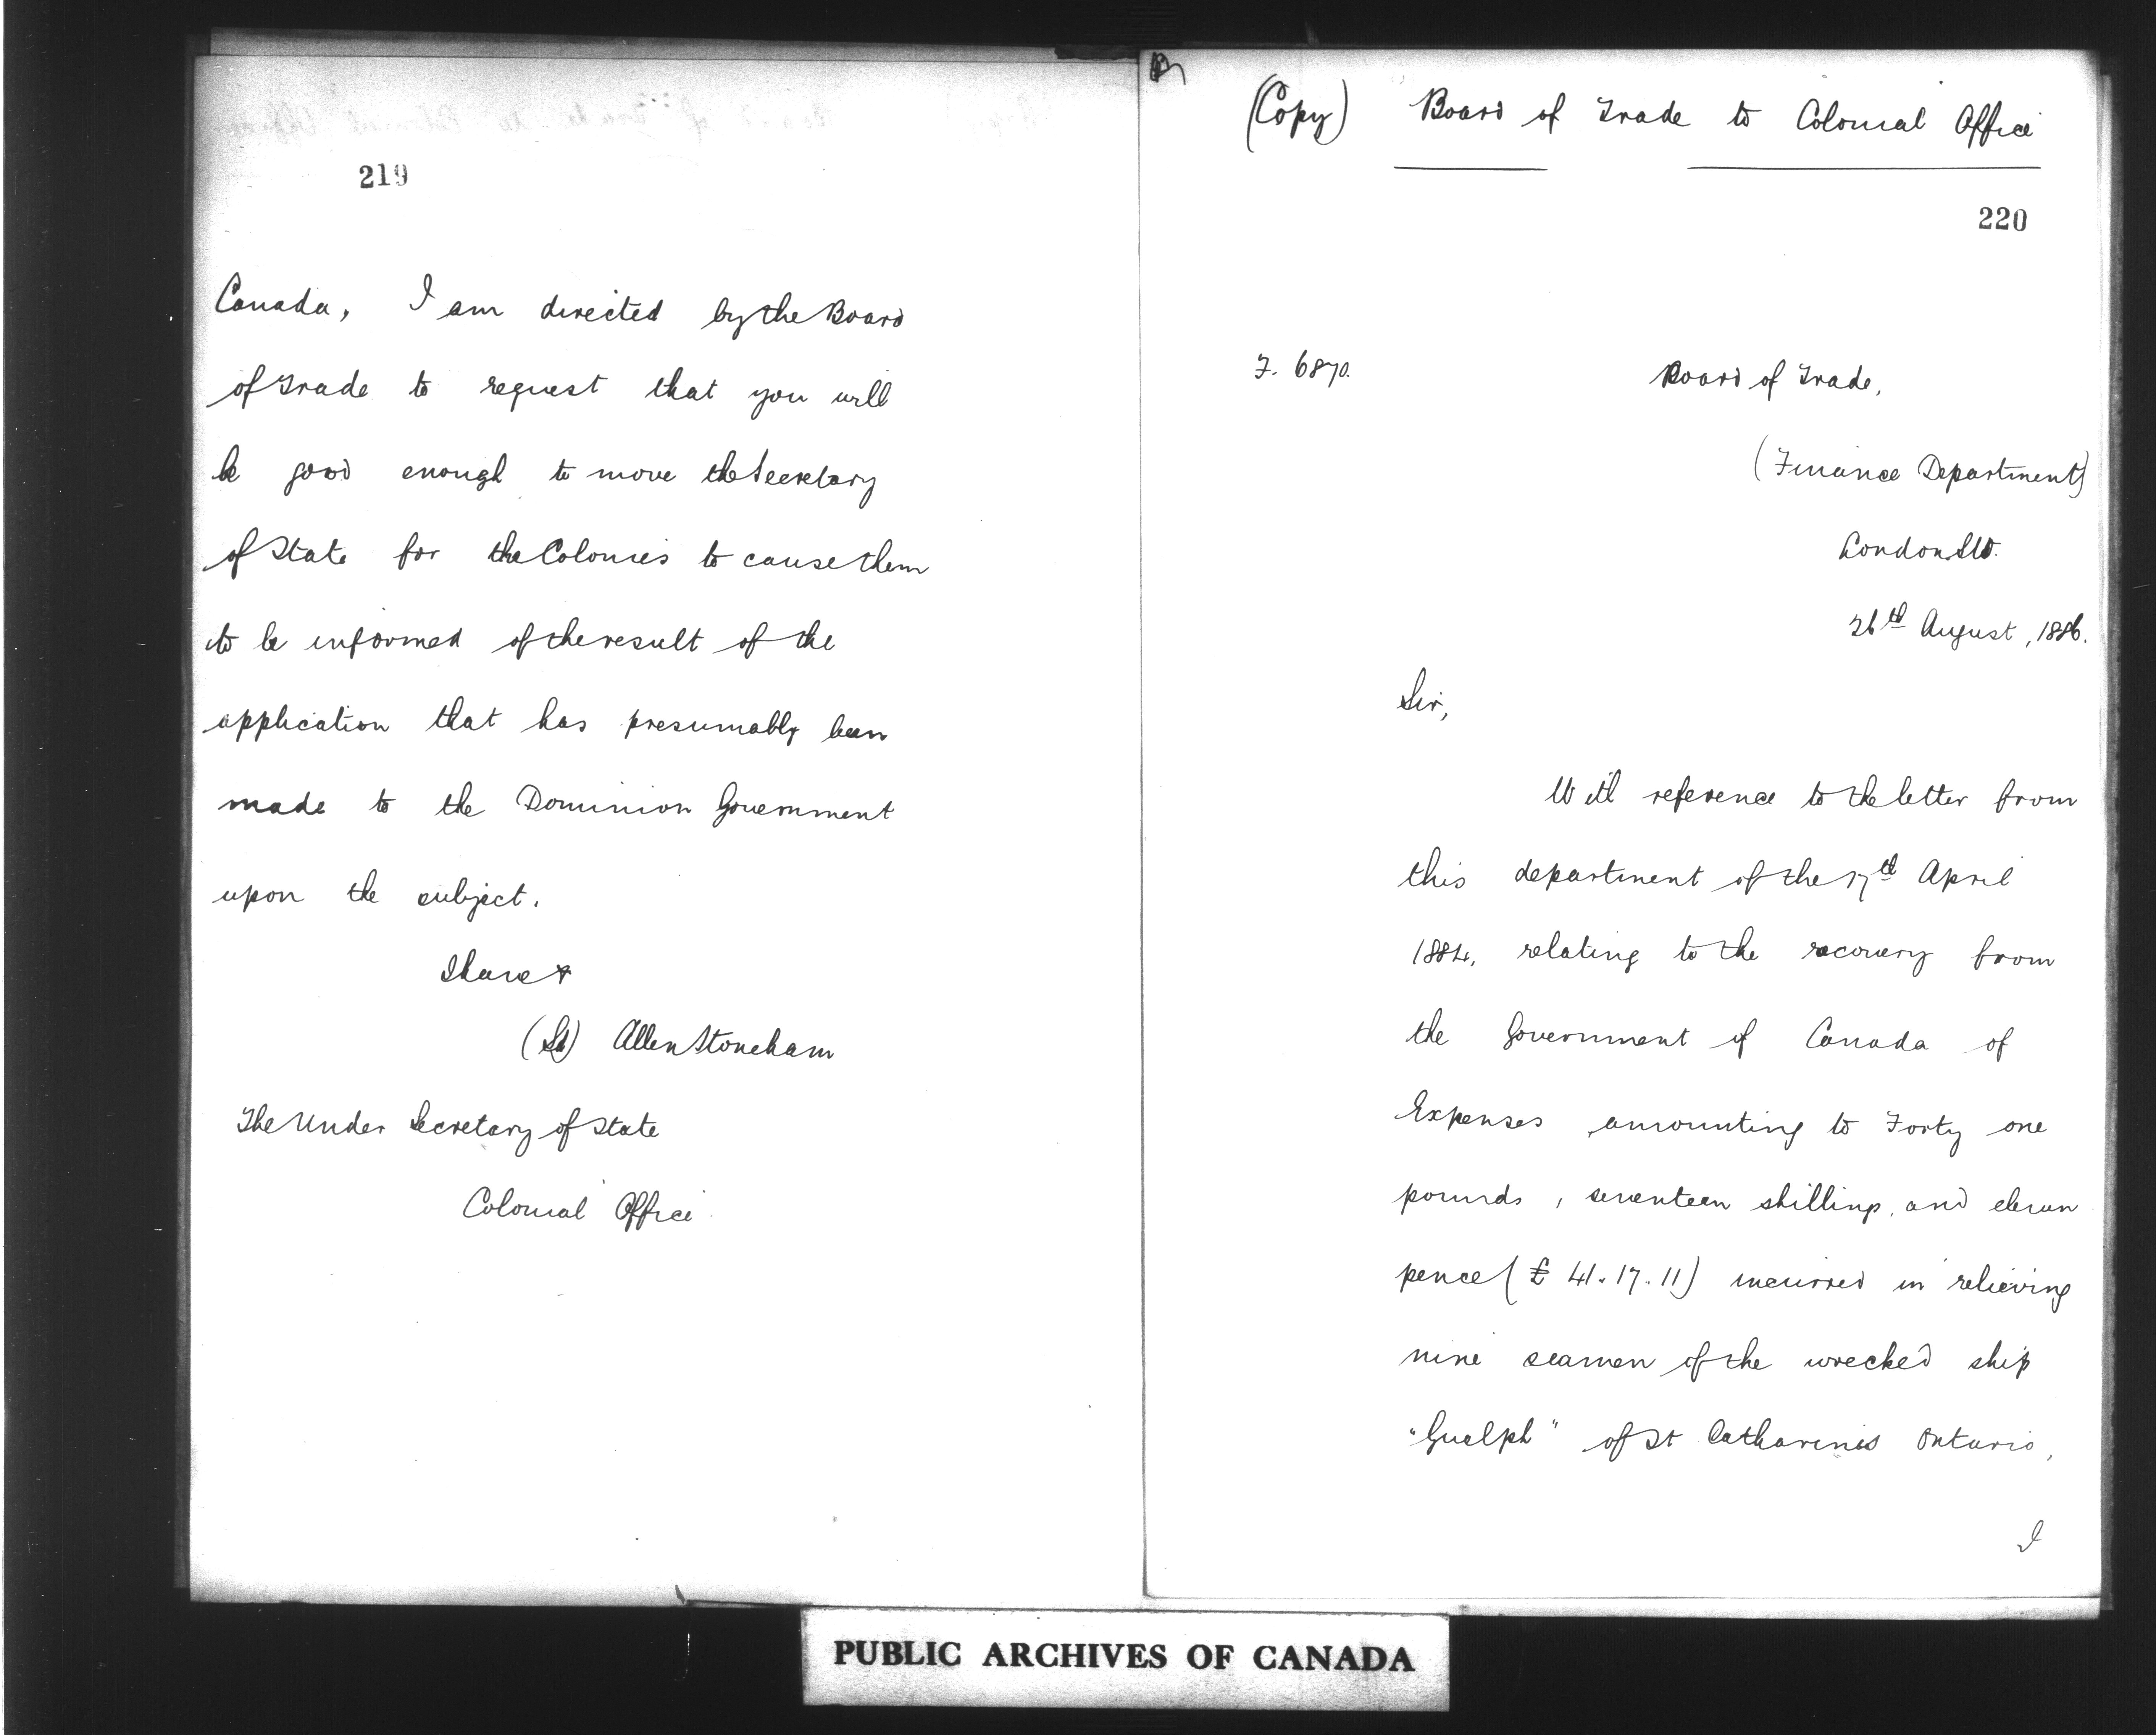 219
Canada, I am directed by the Board
of Trade to request that you will
be good enough to move the Secretary
of State for the Colonies to cause them
to be informed of the result of the
application that has presumably been
made to the Dominion Government
upon the subject.
I have &
(Sd) Allen Stoneham
The Under Secretary of State
Colonial Office
(Copy) Board of Trade to Colonial Office
220
F. 6870.
Board of Trade,
(Finance Department)
London SW.
26th August, 1886.
Sir,
With reference to the letter from
this department of the 17th April
1884, relating to the recovery from
the Government of Canada of
Expenses amounting to Forty one
pounds, seventeen shillings, and eleven
pence (£ 41.17.11) incurred in relieving
nine seamen of the wrecked ship
"Guelph" of St Catharines Ontario,
I
PUBLIC ARCHIVES OF CANADA